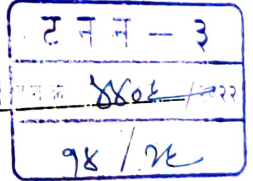 ट न न - ३
४४०६ /२०२२
१४ / २६